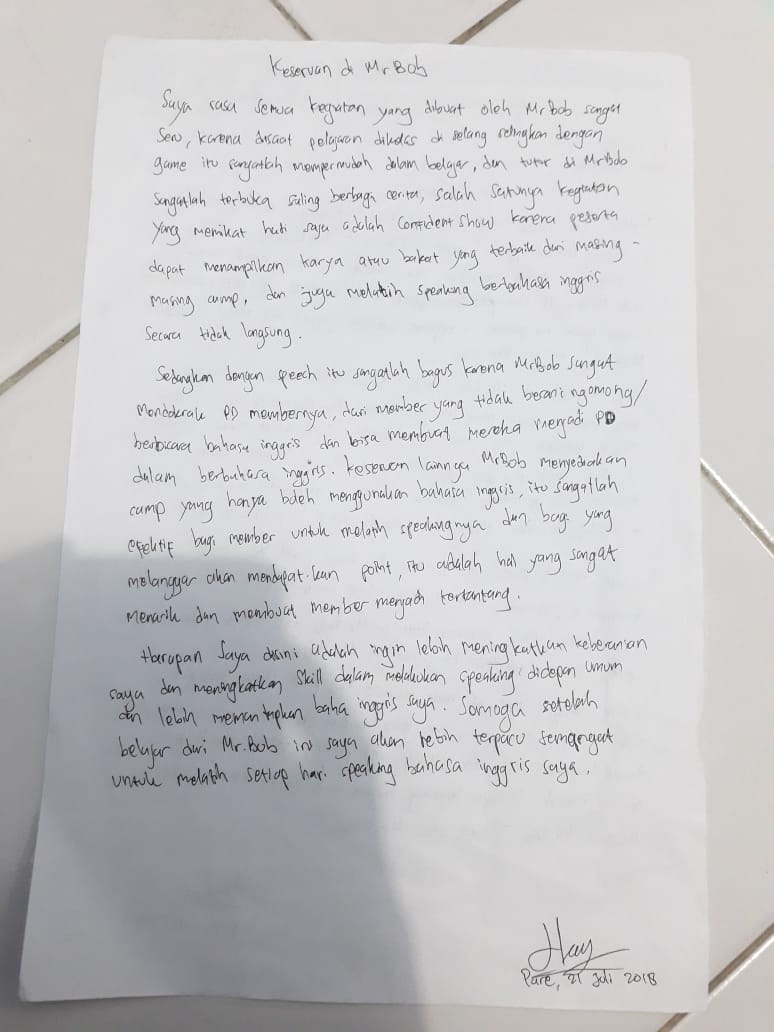 Keseruan di Mr Bob
Saya rasa semua kegiatan yang dibuat oleh Mr Bob sangat
Seru, karena disaat pelajaran dikelas di selang selingkan dengan
game itu sangatlah mempermudah dalam belajar, dan tutor di MrBob
Sangatlah terbuka saling berbagi cerita, salah satunya kegiatan
yang memikat hati saya adalah Confident Show karena peserta
dapat menampilkan karya atau bakat yang terbaik dari masing -
masing camp, dan juga melatih speaking berbahasa inggris
Secara tidak langsung.
Sedangkan dengan speech itu sangatlah bagus karena MrBob sangat
PD membernya, dari member yang tidak berani ngomong/
berbicara bahasa inggris dan bisa membuat mereka menjadi PD
dalam berbahasa inggris. Keseruan lainnya MrBob menyediakan
camp yang hanya boleh menggunakan bahasa inggris, itu sangatlah
efektif bagi member untuk melatih speakingnya dan bagi yang
melanggar akan mendapat.kan point, itu adalah hal yang sangat
menarik dan membuat member menjadi tertantang.
Harapan Saya disini adalah ingin lebih meningkatkan keberanian
saya dan meningkatkan skill dalam melakukan speaking didepan umum
dan lebih memantapkan baha inggris saya. Semoga setelah
belajar dari Mr.Bob ini saya akan lebih terpacu semangat
untuk melatih setiap hari speaking bahasa inggris saya.
Hay
Pare, 21 Juli 2018